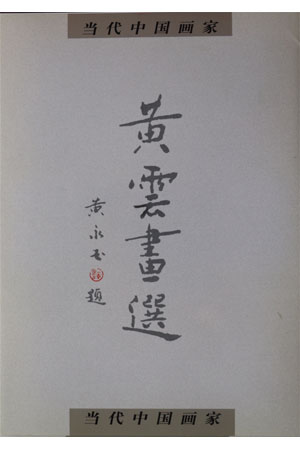 当代中国画家
黄雲畫選
黄永玉題
当代中国画家